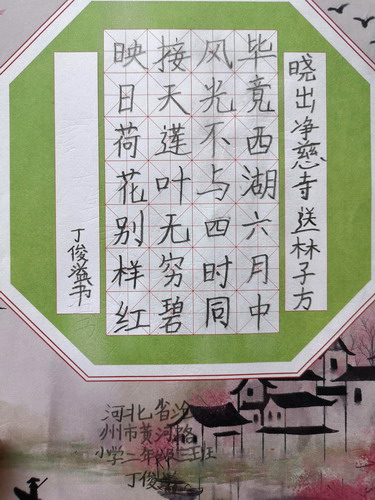 晓出净慈寺送林子方
毕竟西湖六月中
风光不与四时同
接天莲叶无穷碧
映日荷花别样红
丁俊溢书
河北省沧
州市黄河路
小学二年级
丁俊溢